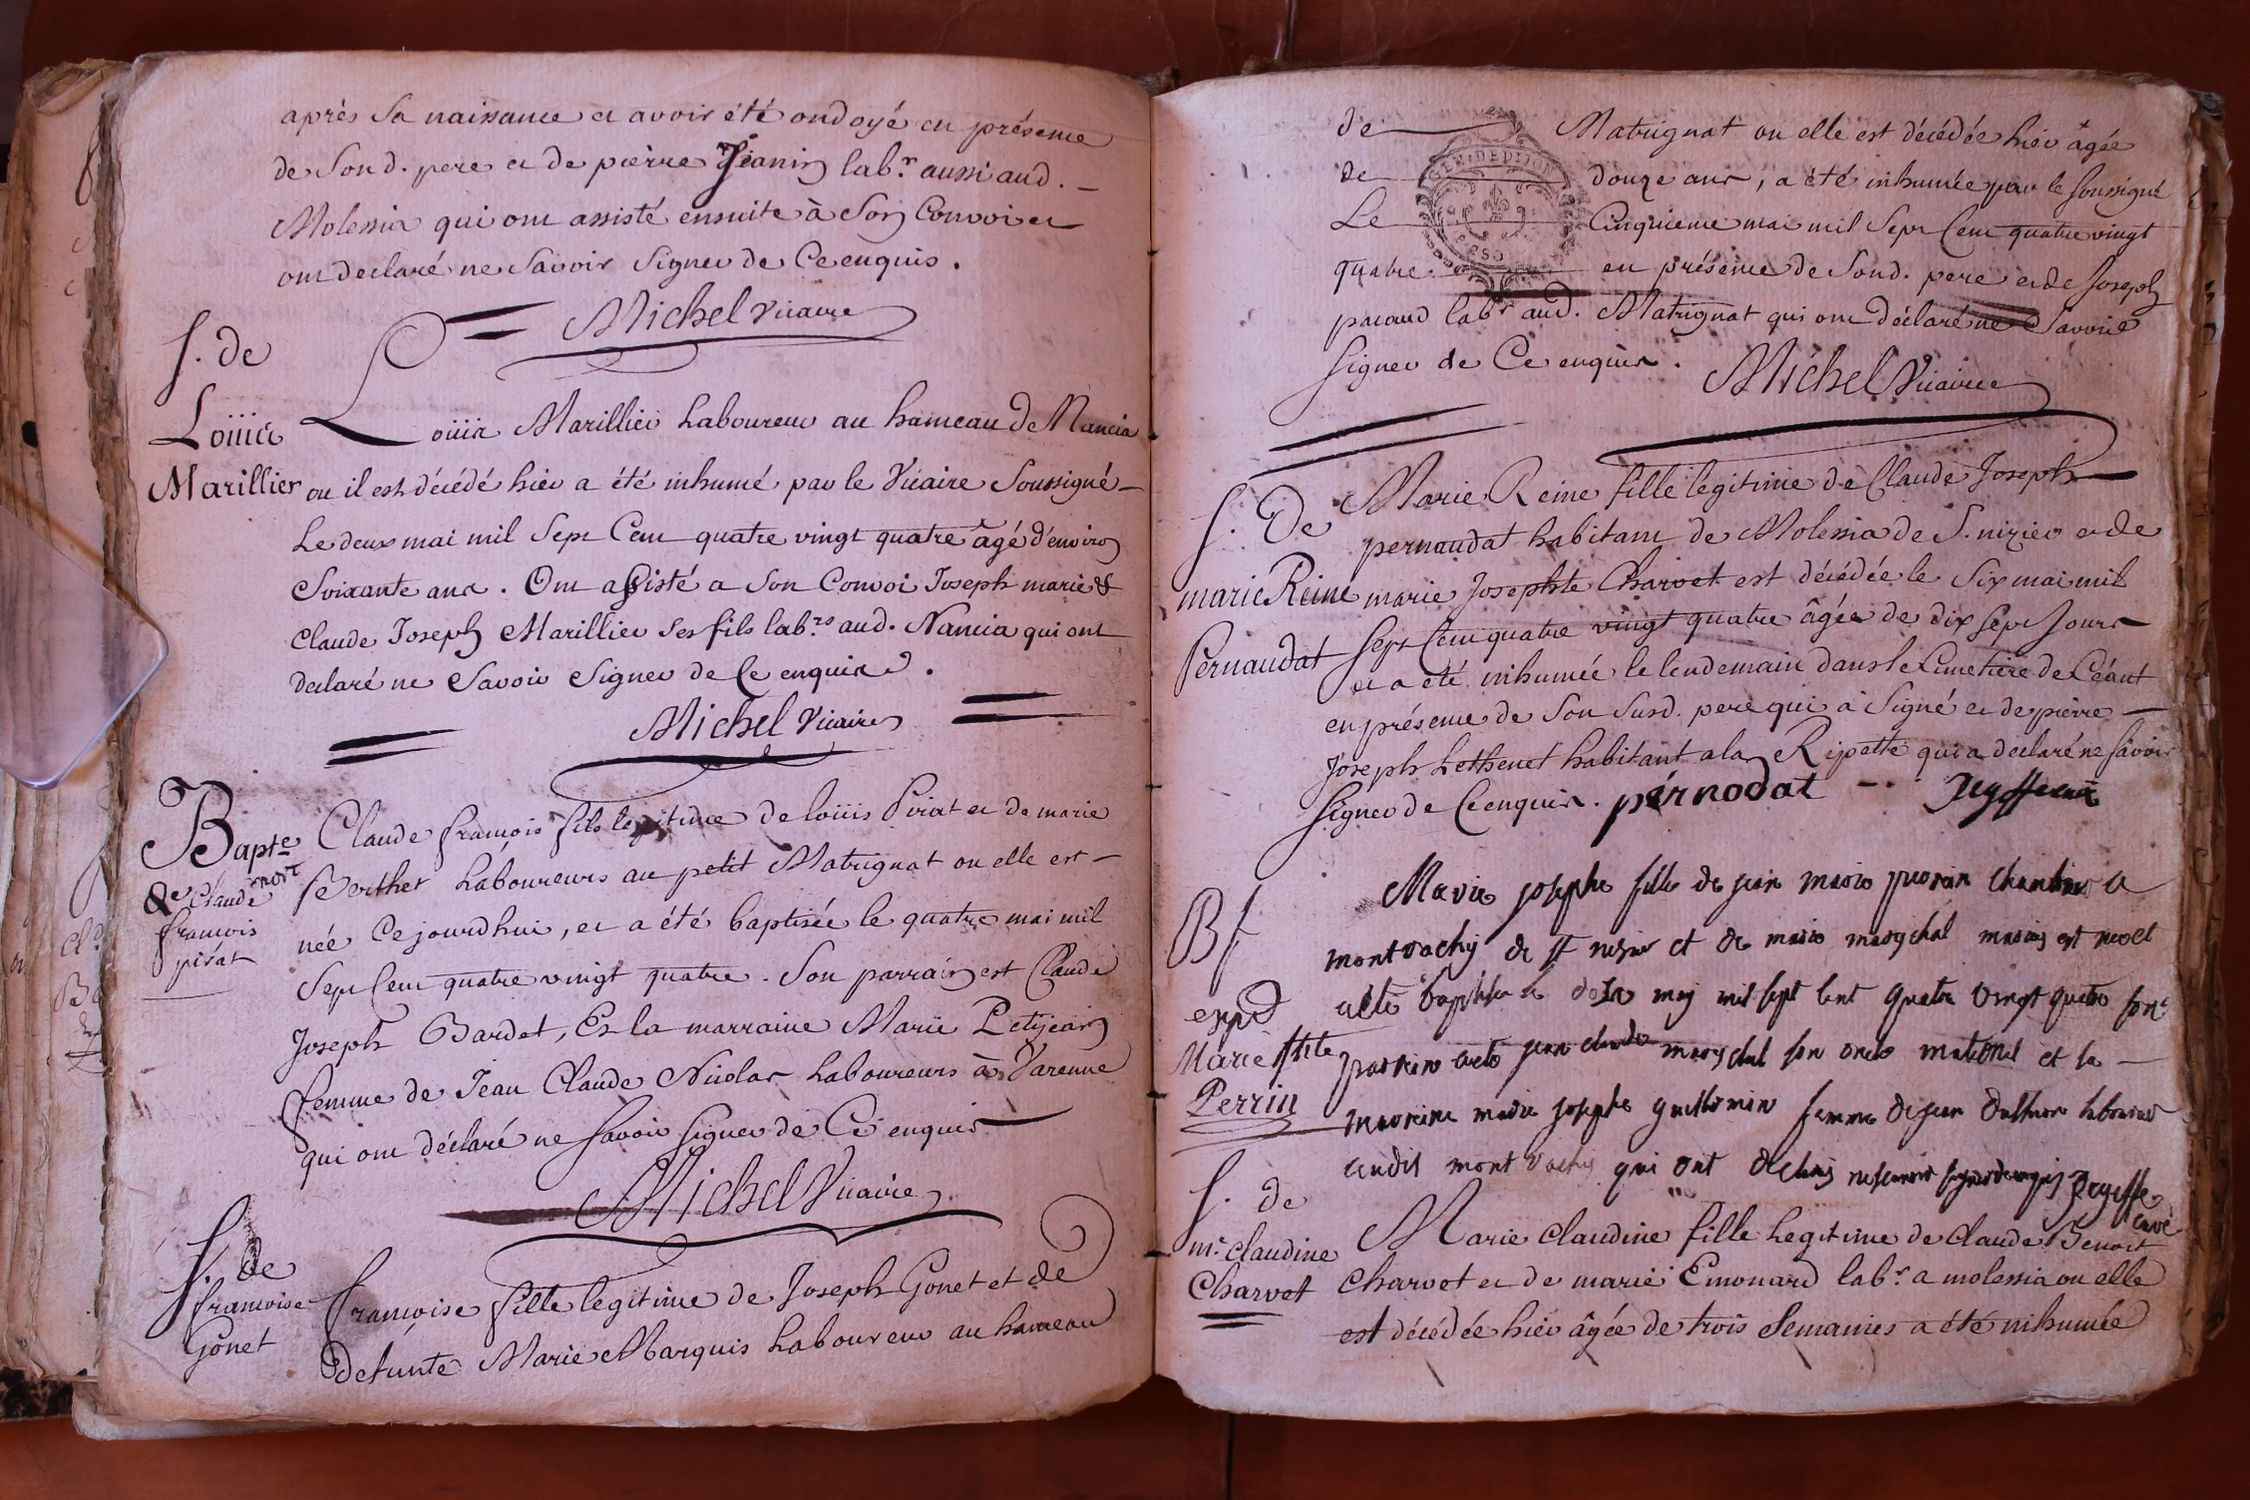 après sa naissance et avoir été ondoyé en présence
de Son d. pere et de pierre Jeanin lab.r aussi aud. —
Molessia qui ont assisté ensuite à Son Convoi et
ont declaré ne Savoir Signer de Ce enquis.
Michel Vicaire
S. de
Loüis
Marillier
Loüis Marillier Laboureur au hameau de Nancia
ou il est décédé hier a été inhumé par le Vicaire Soussigné —
Le deux mai mil Sept Cent quatre vingt quatre âgé d'environ
Soixante ans. Ont assisté a Son Convoi Joseph marie &
Claude Joseph Marillier Ses fils lab.rs aud. Nancia qui ont
declaré ne Savoir Signer de Ce enquis.
Michel Vicaire
Bapte
De Claude mort
françois
pirat
Claude françois fils legitime de loüis Pirat et de marie
Berthet Laboureurs au petit Matrignat ou elle est —
née Ce jourdhui, et a été baptisée le quatre mai mil
Sept Cent quatre vingt quatre. Son parrain est Claude
Joseph Bardet, Et la marraine Marie Petijean
femme de Jean Claude Nicolas Laboureurs à Varenne
qui ont déclaré ne Savoir Signer de Ce enquis —
Michel Vicaire
S. de
francoise
Gonet
françoise fille legitime de Joseph Gonet et de
defunte Marie Marquis Laboureur au hameau
de Matrignat ou elle est décédée hier âgée
de douze ans, a été inhumée par le Soussigné
Le Cinquieme mai mil Sept Cent quatre vingt
quatre. en présence de Son d. pere et de Joseph
pacaud lab.r aud. Matrignat qui ont déclaré ne Savoir
Signer de Ce enquis.
GEN. DE DIJON
Michel Vicaire
S. De
marie Reine
Pernaudat
Marie Reine fille legitime de Claude Joseph
pernaudat habitant de Molessia de S. nizier et de
marie Josephte Charvet est décédée le Six mai mil
Sept Cent quatre vingt quatre âgée de dix Sept Jours
et a été inhumée le lendemain dans le Cimetiere de Céant
en présence de Son Susd. pere qui a Signé et de pierre —
Joseph Lethenet habitant a la Ripette qui a declaré ne Savoir
Signer de Ce enquis. pérnodat
B f
expd
Marie Jste
Perrin
Marie josephe fille de jean marie perrin a
montvachy de st nisier et de marie marychal maries est nee et
ete baptisee le may mil sept cent quatre vingt quatre son
parrin jean claude marychal son oncle maternel et la —
marrine marie josephe guillemin femme de jean
audit mont vachy qui ont declaré
curé
S. de
m.e claudine
Charvet
Marie Claudine fille Legitime de Claude Benoit
Charvet et de marie Emonard lab.r a molessia ou elle
est décédée hier âgée de trois Semaines a été inhumée